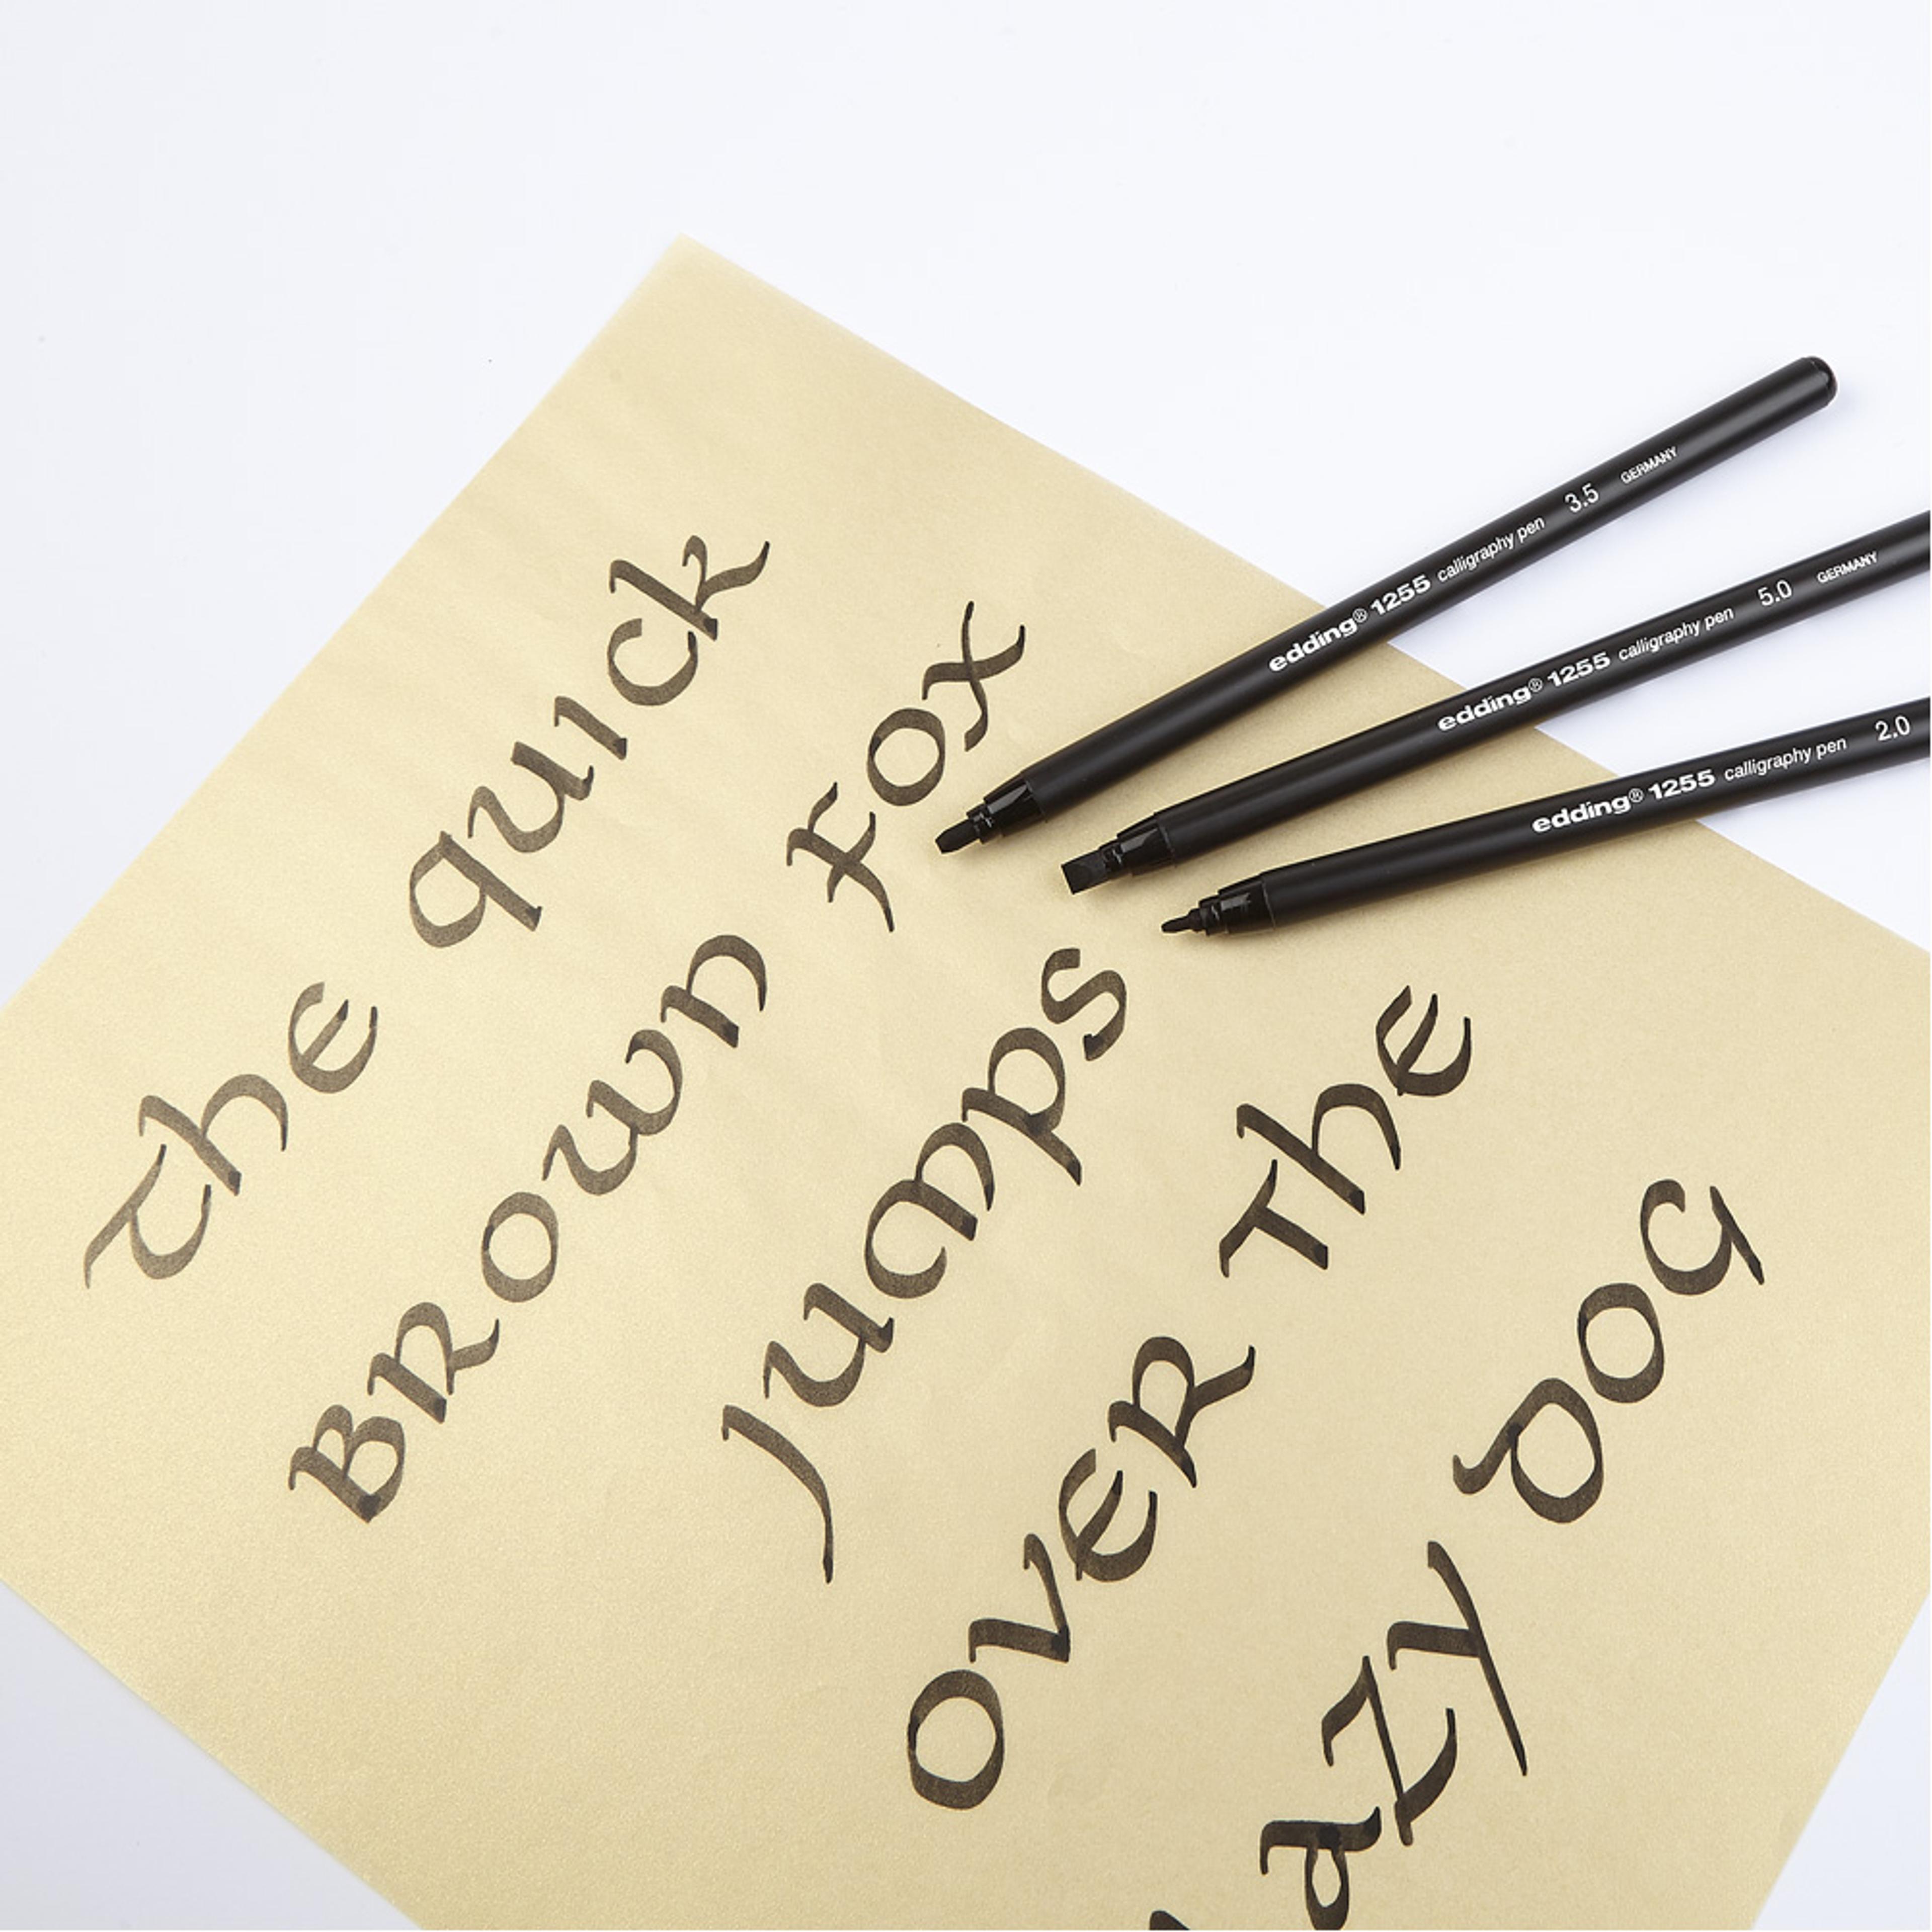 The quick
Brown Fox
Jumps
Over The
azy Dog
edding® 1255 calligraphy pen 3.5 GERMANY
edding® 1255 calligraphy pen 5.0 GERMANY
edding® 1255 calligraphy pen 2.0